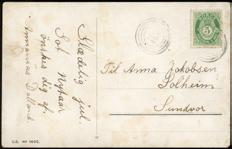 Glædelig jul.
Got Nytaar
ønskes dig af
Til Anna Jakobsen
Solheim
Sundvor
5